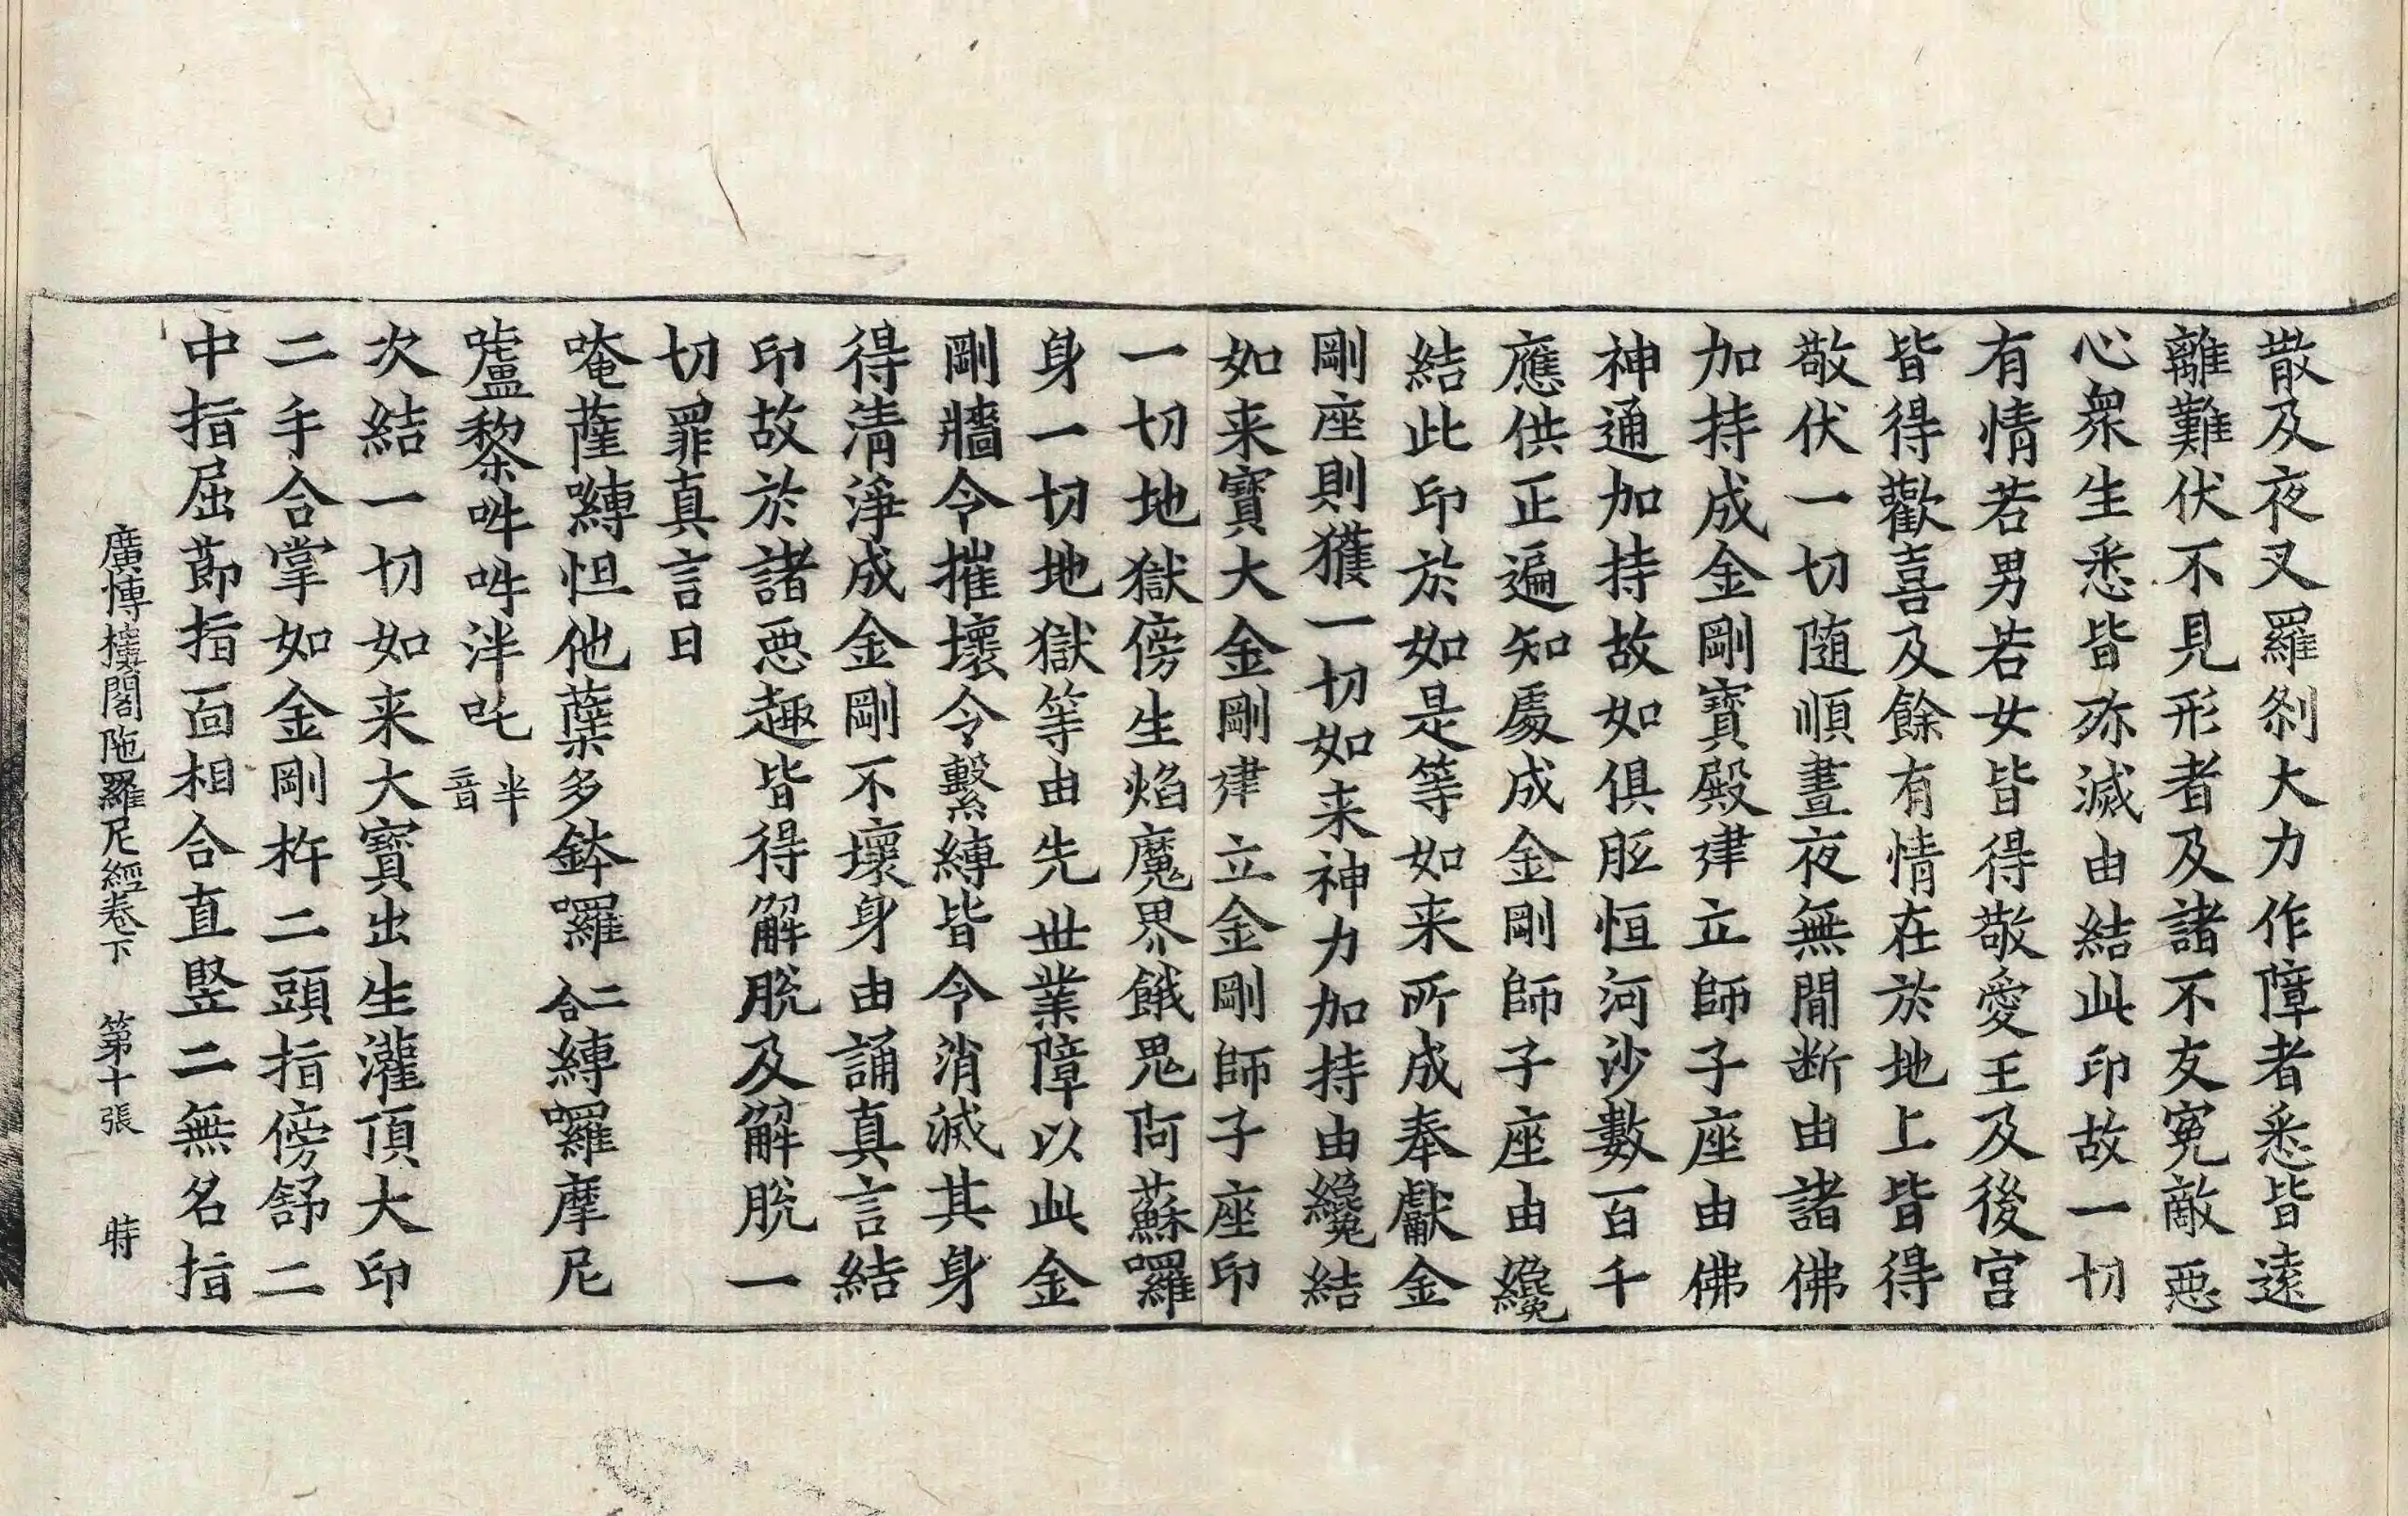 散及夜叉羅刹大力作障者悉皆遠
離難伏不見形者及諸不友寃敵惡
心衆生悉皆殄滅由結此印故一切
有情若男若女皆得敬愛王及後宮
皆得歡喜及餘有情在於地上皆得
敬伏一切随順晝夜無間断由諸佛
加持成金剛寶殿建立師子座由佛
神通加持故如俱胝恒河沙數百千
應供正遍知處成金剛師子座由纔
結此印於如是等如来所成奉獻金
剛座則獲一切如来神力加持由纔結
如来寶大金剛建立金剛師子座印
一切地獄傍生焰魔界餓鬼阿蘇囉
身一切地獄等由先世業障以此金
剛牆令摧壞令繫縛皆令消滅其身
得清淨成金剛不壞身由誦真言結
印故於諸惡趣皆得解脫及解脫一
切罪真言曰
唵薩嚩怛他蘖多鉢囉二合縛囉摩尼
嚧黎吽吽泮吒半音
次結一切如来大寶出生灌頂大印
二手合掌如金剛杵二頭指傍舒二
中指屈節指面相合直竪二無名指
廣博樓閣陁羅尼經卷下 第十張 時